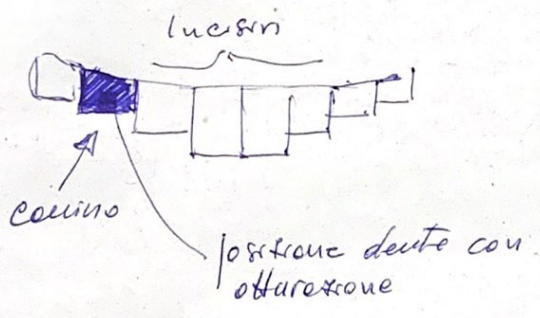 Incisivi
canino
posizione dente con
otturazione